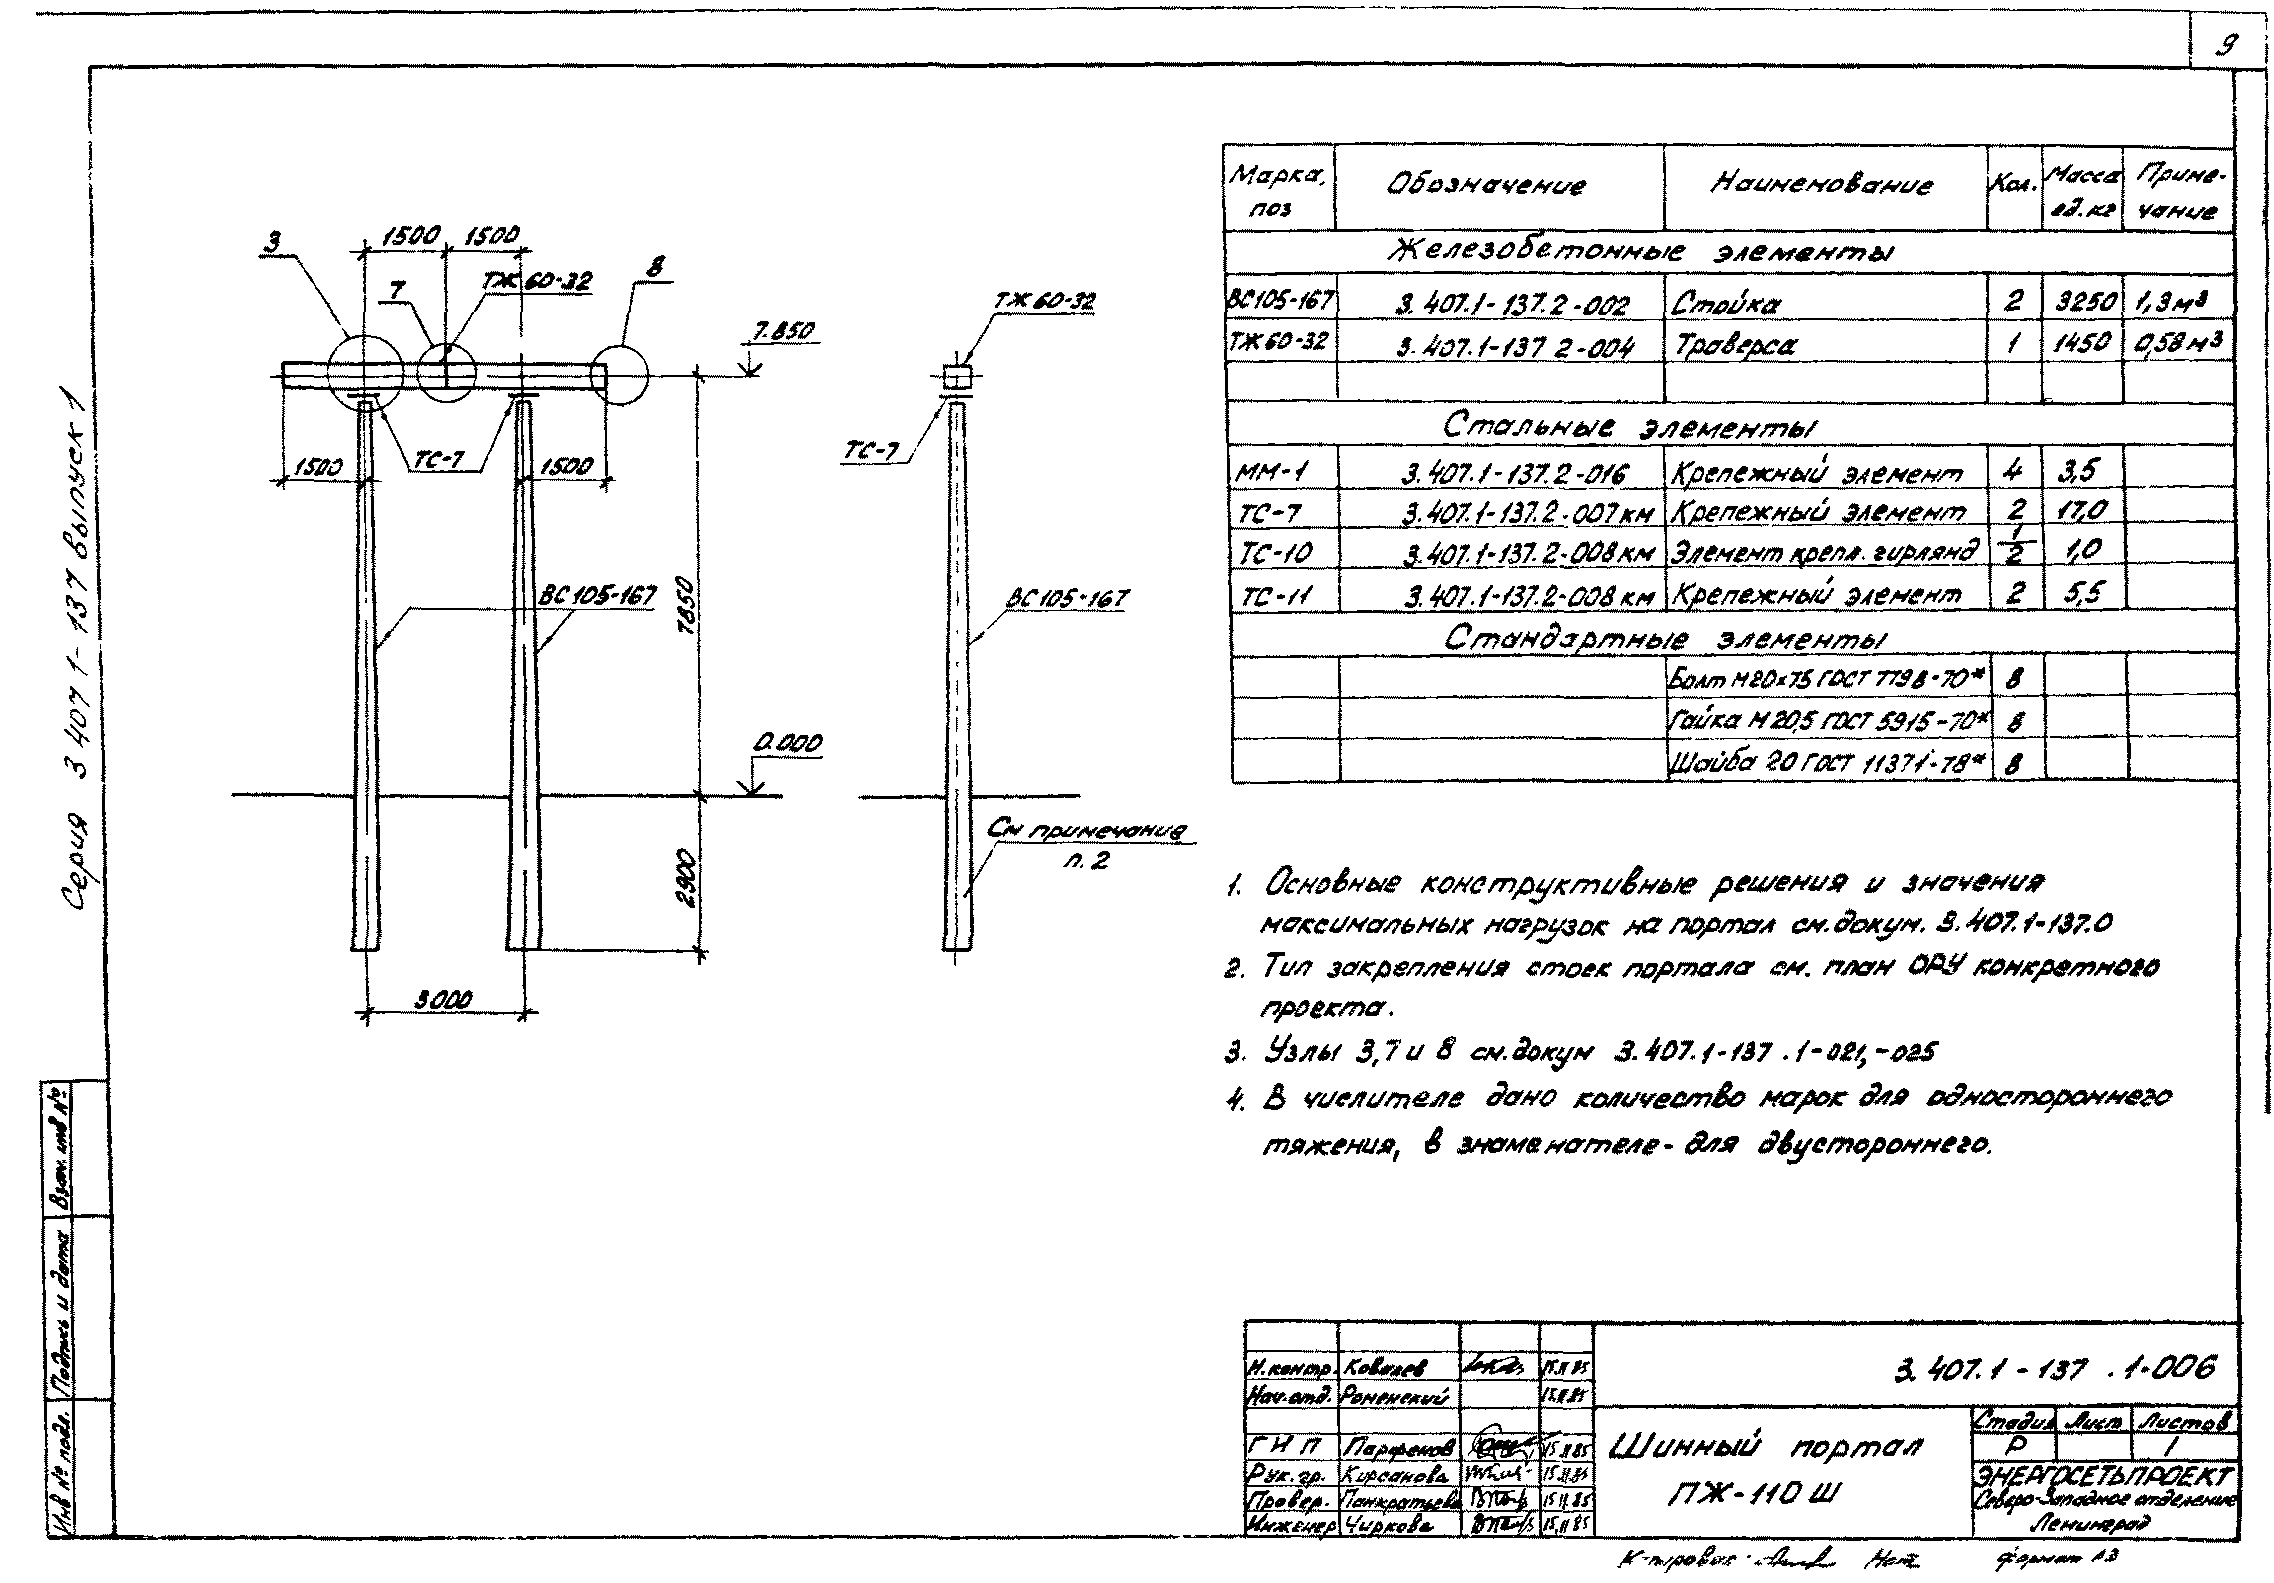 9
Серия 3 407 1-137 выпуск 1
3
1500
1500
7
ТЖ 60-32
8
7.850
1500
ТС-7
1500
ВС105-167
7850
0.000
2900
3000
ТЖ 60-32
ТС-7
ВС105-167
См примечание
п. 2
Марка, поз | Обозначение | Наименование | Кол. | Масса ед.кг | Приме-чание
Железобетонные элементы
ВС105-167 | 3.407.1-137.2-002 | Стойка | 2 | 3250 | 1,3м³
ТЖ60-32 | 3.407.1-137 2-004 | Траверса | 1 | 1450 | 0,58м³
Стальные элементы
ММ-1 | 3.407.1-137.2-016 | Крепежный элемент | 4 | 3,5
ТС-7 | 3.407.1-137.2-007км | Крепежный элемент | 2 | 17,0
ТС-10 | 3.407.1-137.2-008км | Элемент крепл. гирлянд | 1/2 | 1,0
ТС-11 | 3.407.1-137.2-008км | Крепежный элемент | 2 | 5,5
Стандартные элементы
Болт М20×75 ГОСТ 7798-70* | 8
Гайка М20,5 ГОСТ 5915-70* | 8
Шайба 20 ГОСТ 11371-78* | 8
1. Основные конструктивные решения и значения
максимальных нагрузок на портал см.докум. 3.407.1-137.0
2. Тип закрепления стоек портала см. план ОРУ конкретного
проекта.
3. Узлы 3,7 и 8 см.докум 3.407.1-137 .1-021,-025
4. В числителе дано количество марок для одностороннего
тяжения, в знаменателе - для двустороннего.
Взам. инв №
Подпись и дата
Инв № подл.
Н.контр. Ковалев 15.11.85
Нач.отд. Роменский 15.11.85
ГИП Парфенов 15.11.85
Рук. гр. Кирсанова 15.11.85
Провер. Панкратьева 15.11.85
Инженер Чиркова 15.11.85
3.407.1-137 .1-006
Шинный портал
ПЖ-110Ш
Стадия Лист Листов
Р 1
ЭНЕРГОСЕТЬПРОЕКТ
Северо-Западное отделение
Ленинград
формат А3